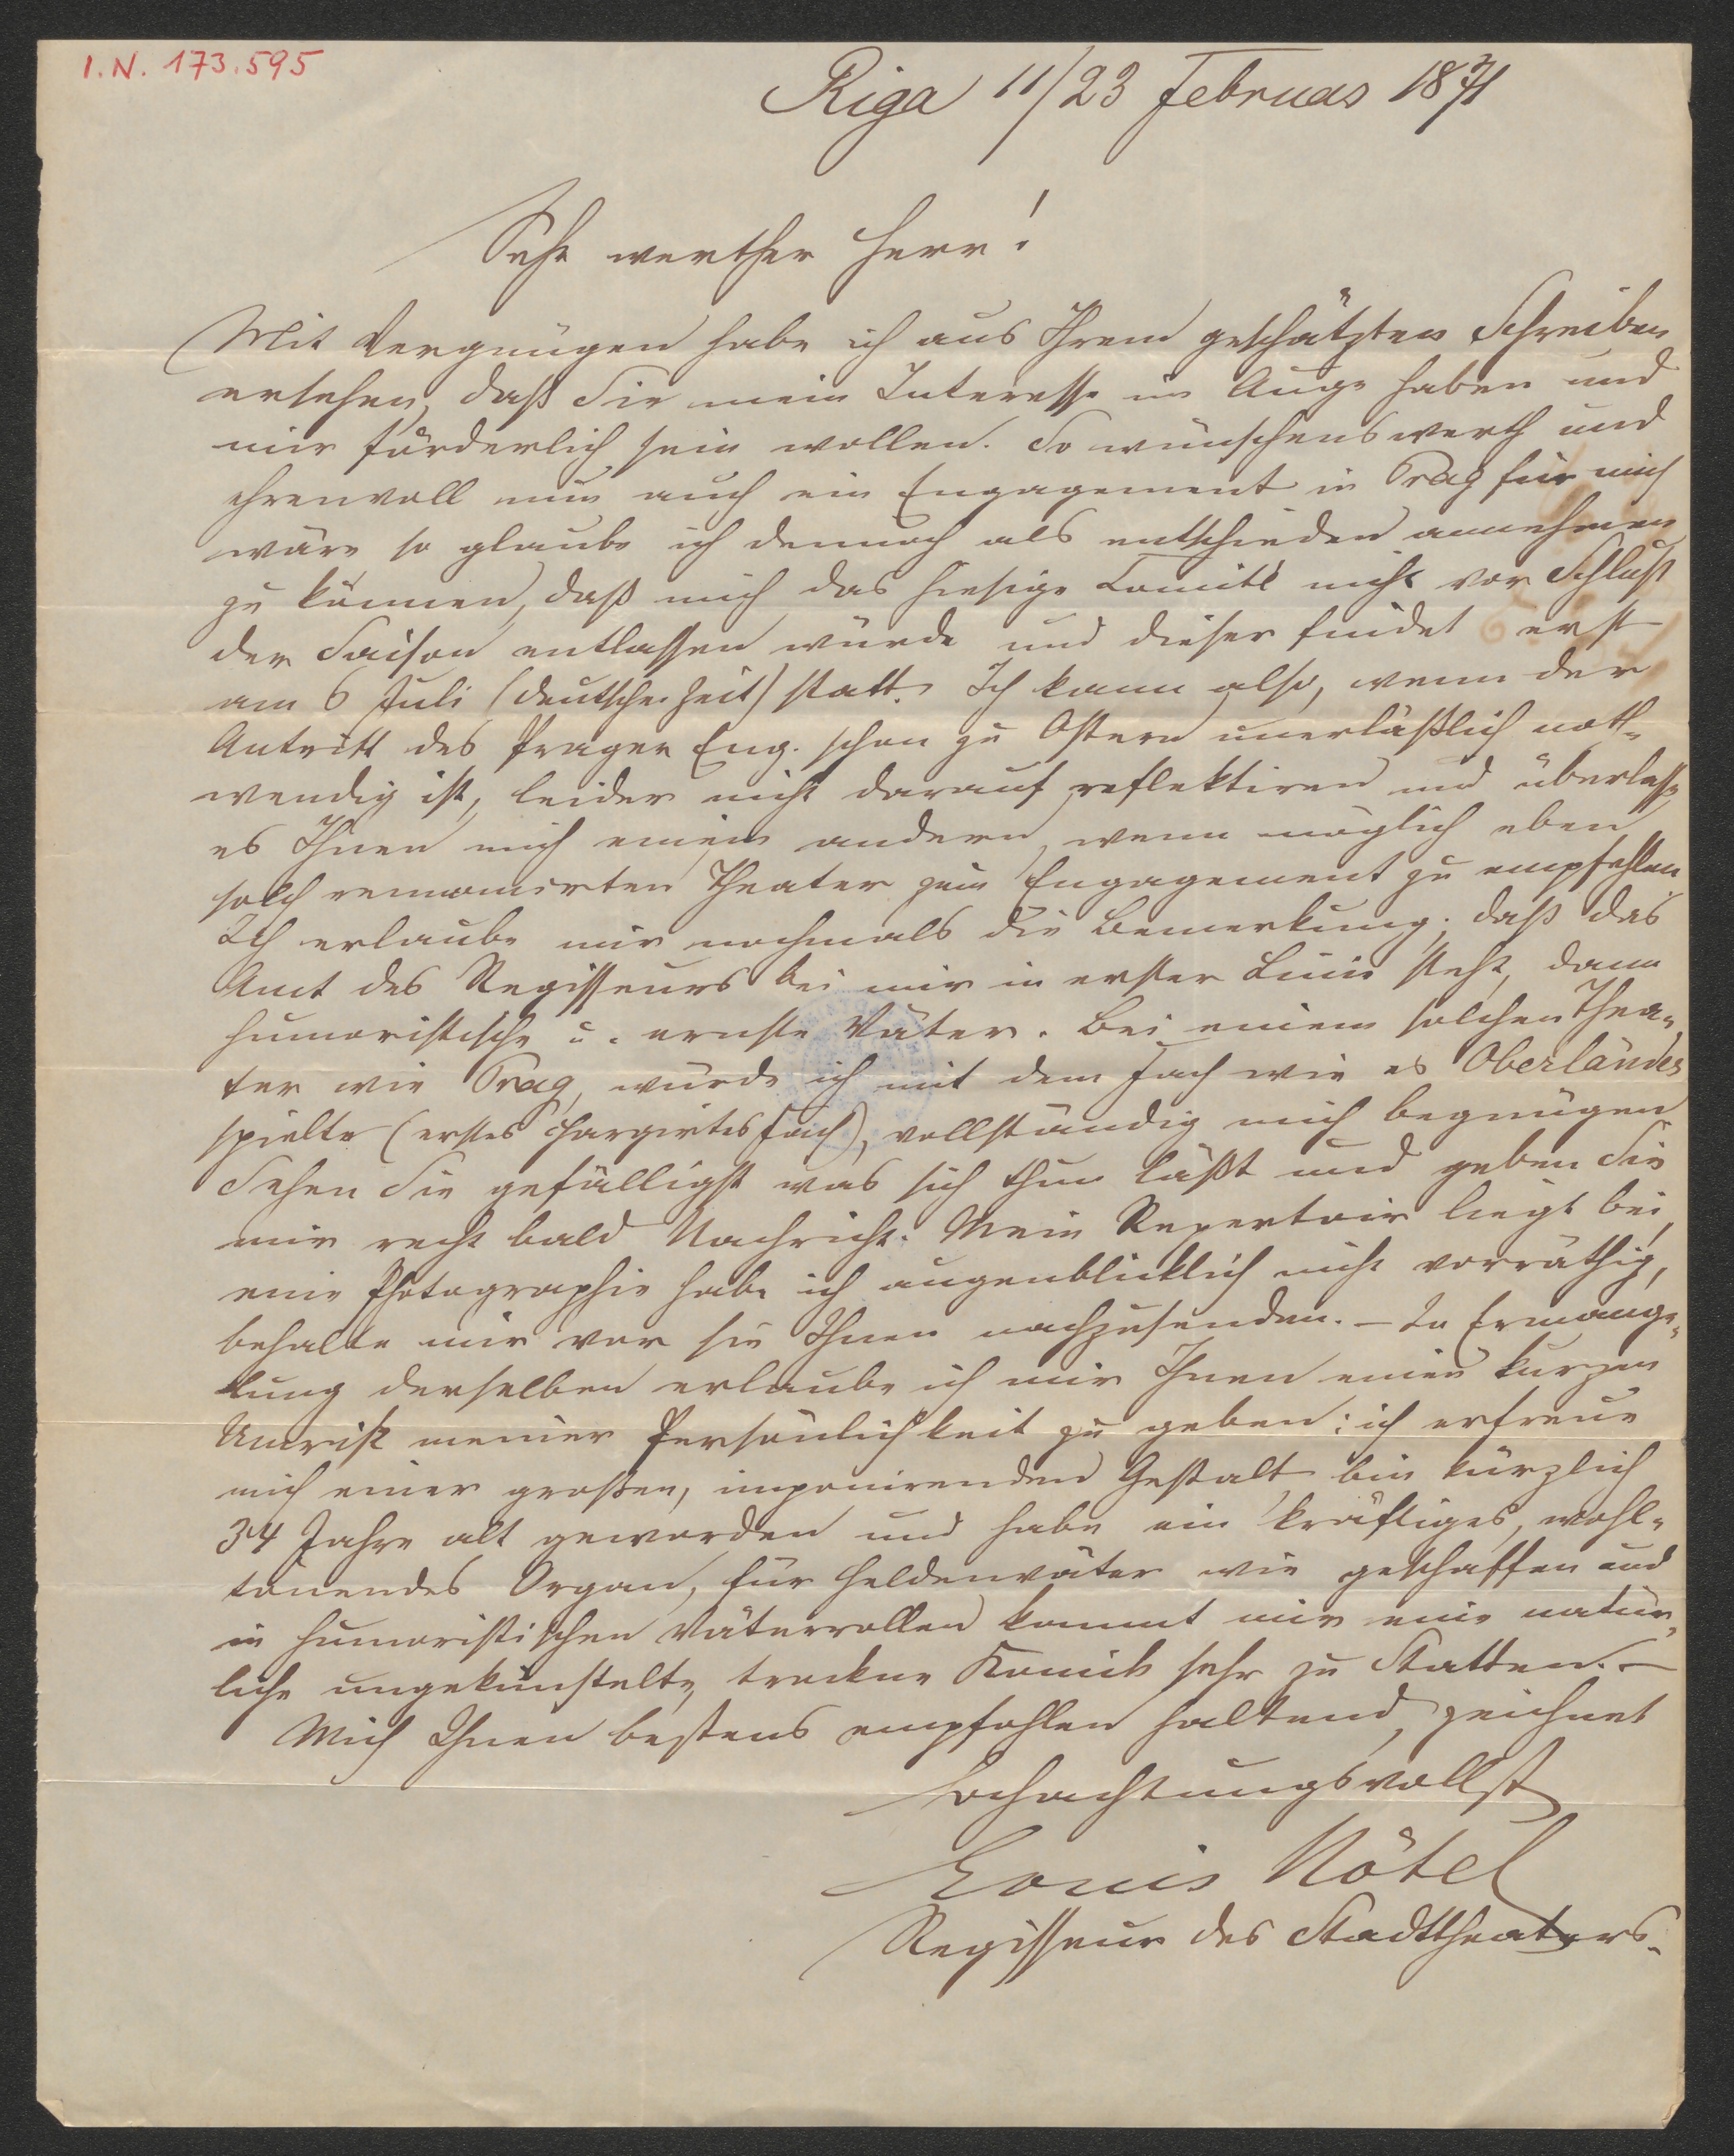 I.N. 173.595
Riga 11/23 Februar 1871
Sehr werther Herr!
Mit Vergnügen habe ich aus Ihrem geschätzten Schreiben
ersehen, daß Sie mein Interesse im Auge haben und
mir förderlich sein wollen. So wünschenswerth und
ehrenvoll nun auch ein Engagement in Prag für mich
wäre so glaube ich dennoch als entschieden annehmen
zu können, daß mich das hiesige Comité nicht vor Schluß
der Saison entlassen würde und dieser findet erst
am 6 Juli (deutsche Zeit) statt. Ich kann also, wenn der
Antritt des Prager Eng. schon zu Ostern unerläßlich noth-
wendig ist, leider nicht darauf reflektiren und überlasse
es Ihnen mich einem andern, wenn möglich eben
solch renomirten Theater zum Engagement zu empfehlen.
Ich erlaube mir nochmals die Bemerkung, daß das
Amt des Regisseurs bei mir in erster Linie steht, dann
humoristische u. ernste Väter. Bei einem solchen Thea-
ter wie Prag, würde ich mit dem Fach wie es Oberländer
spielte (erstes chargirtes Fach), vollständig mich begnügen.
Sehen Sie gefälligst was sich thun läßt und geben Sie
mir recht bald Nachricht. Mein Repertoir liegt bei,
eine Photographie habe ich augenblicklich nicht vorräthig,
behalte mir vor sie Ihnen nachzusenden. – In Ermange-
lung derselben erlaube ich mir Ihnen einen kurzen
Umriß meiner Persönlichkeit zu geben: ich erfreue
mich einer großen, imponirenden Gestalt, bin kürzlich
34 Jahre alt geworden und habe ein kräftiges, wohl-
tönendes Organ, für Heldenväter wie geschaffen und
in humoristischen Väterrollen kommt mir eine natür-
liche ungekünstelte, trockne Komik sehr zu Statten. –
Mich Ihnen bestens empfohlen haltend, zeichnet
Hochachtungsvollst
Louis Nötel
Regisseur des Stadttheaters.